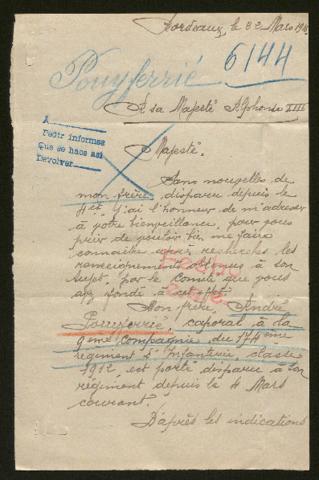 Bordeaux, le 22 Mars 191
6144
Pouyferrié
A Sa Majesté Alphonse XIII
A
Pedir informes
que se hace así
Devolver
Majesté.
Sans nouvelles de
mon frère, disparu depuis le
4 j'ai l'honneur de m'adresser
à votre bienveillance, pour vous
prier de vouloir bien me faire
connaître après recherches les
renseignements obtenus à son
sujet, par le Comité que vous
avez fondé à cet effet.
Mon frère, André
Pouyferrié, caporal à la
9ème Compagnie du 174ème
régiment d'Infanterie, classe
1912, est porté disparu à son
régiment depuis le 4 Mars
courant.
D'après les indications